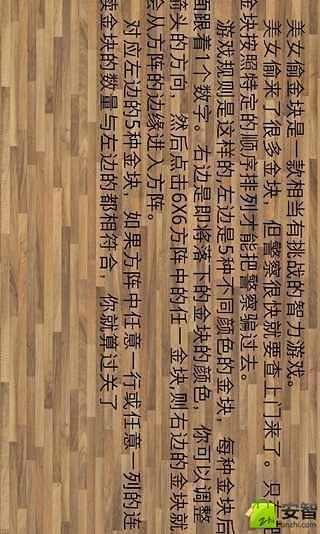 美女偷金块是一款相当有挑战的智力游戏。
美女偷来了很多金块，但警察很快就要查上门来了。只
金块按照特定的顺序排列才能把警察骗过去。
游戏规则是这样的,左边是5种不同颜色的金块，每种金块后
面跟着1个数字。右边是即将落下的金块的颜色，你可以调整
箭头的方向，然后点击6X6方阵中的任一金块,则右边的金块就
会从方阵的边缘进入方阵。
对应左边的5种金块，如果方阵中任意一行或任意一列的连
续金块的数量与左边的都相符合，你就算过关了
安智
anzhi.com